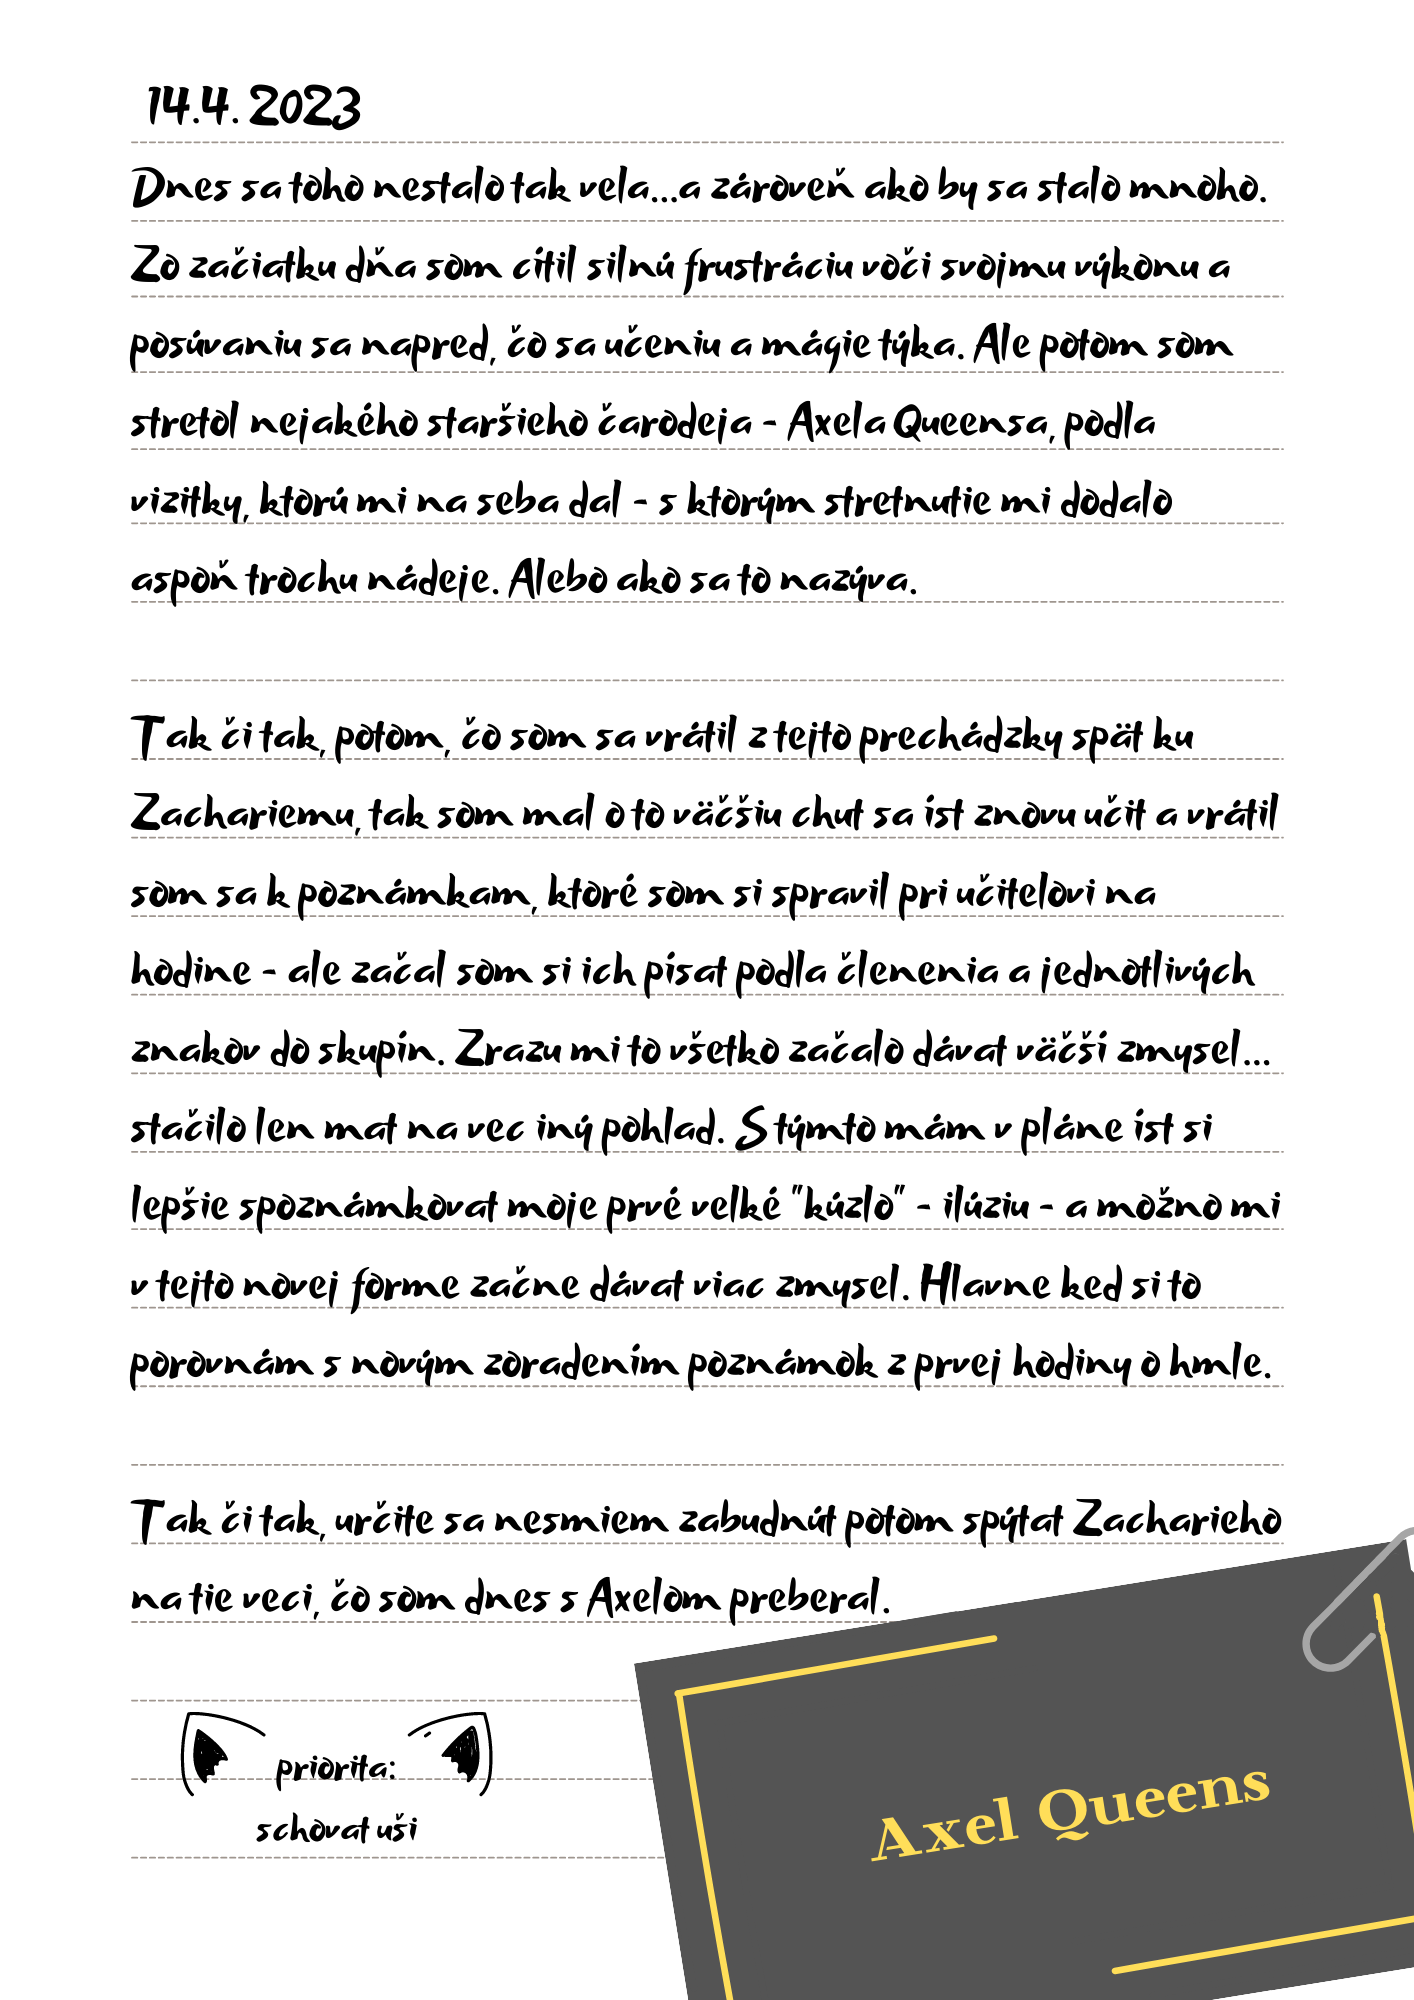 14.4. 2023
Dnes sa toho nestalo tak vela...a zároveň ako by sa stalo mnoho.
Zo začiatku dňa som cítil silnú frustráciu voči svojmu výkonu a
posúvaniu sa napred, čo sa učeniu a mágie týka. Ale potom som
stretol nejakého staršieho čarodeja - Axela Queensa, podla
vizitky, ktorú mi na seba dal - s ktorým stretnutie mi dodalo
aspoň trochu nádeje. Alebo ako sa to nazýva.
Tak či tak, potom, čo som sa vrátil z tejto prechádzky spät ku
Zachariemu, tak som mal o to väčšiu chut sa íst znovu učit a vrátil
som sa k poznámkam, ktoré som si spravil pri učitelovi na
hodine - ale začal som si ich písat podla členenia a jednotlivých
znakov do skupín. Zrazu mi to všetko začalo dávat väčší zmysel...
stačilo len mat na vec iný pohlad. S týmto mám v pláne íst si
lepšie spoznámkovat moje prvé velké "kúzlo" - ilúziu - a možno mi
v tejto novej forme začne dávat viac zmysel. Hlavne ked si to
porovnám s novým zoradením poznámok z prvej hodiny o hmle.
Tak či tak, určite sa nesmiem zabudnút potom spýtat Zacharieho
na tie veci, čo som dnes s Axelom preberal.
priorita:
schovat uši
Axel Queens